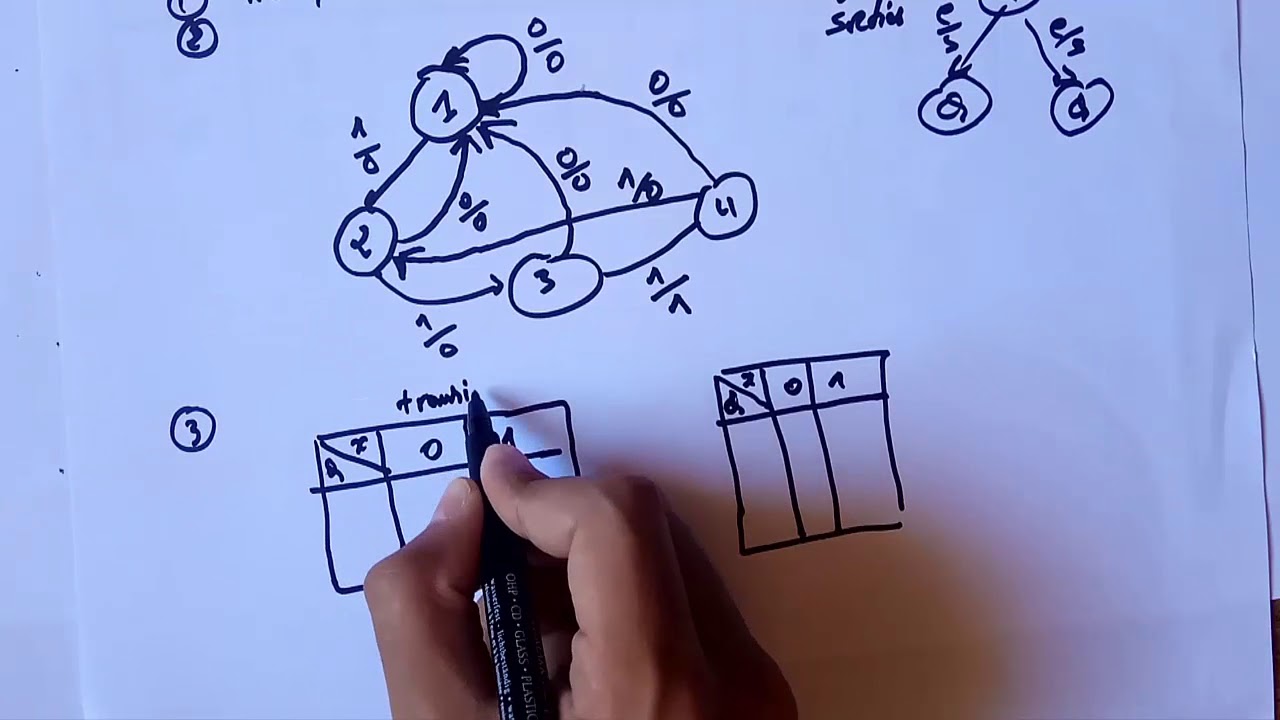 1
2
0/0
1
0/0
1/0
0/0
0/0
1/0
2
3
4
1/0
1/1
3
x
0
1
x
0
1
OHP • CD • GLASS • PLASTIC